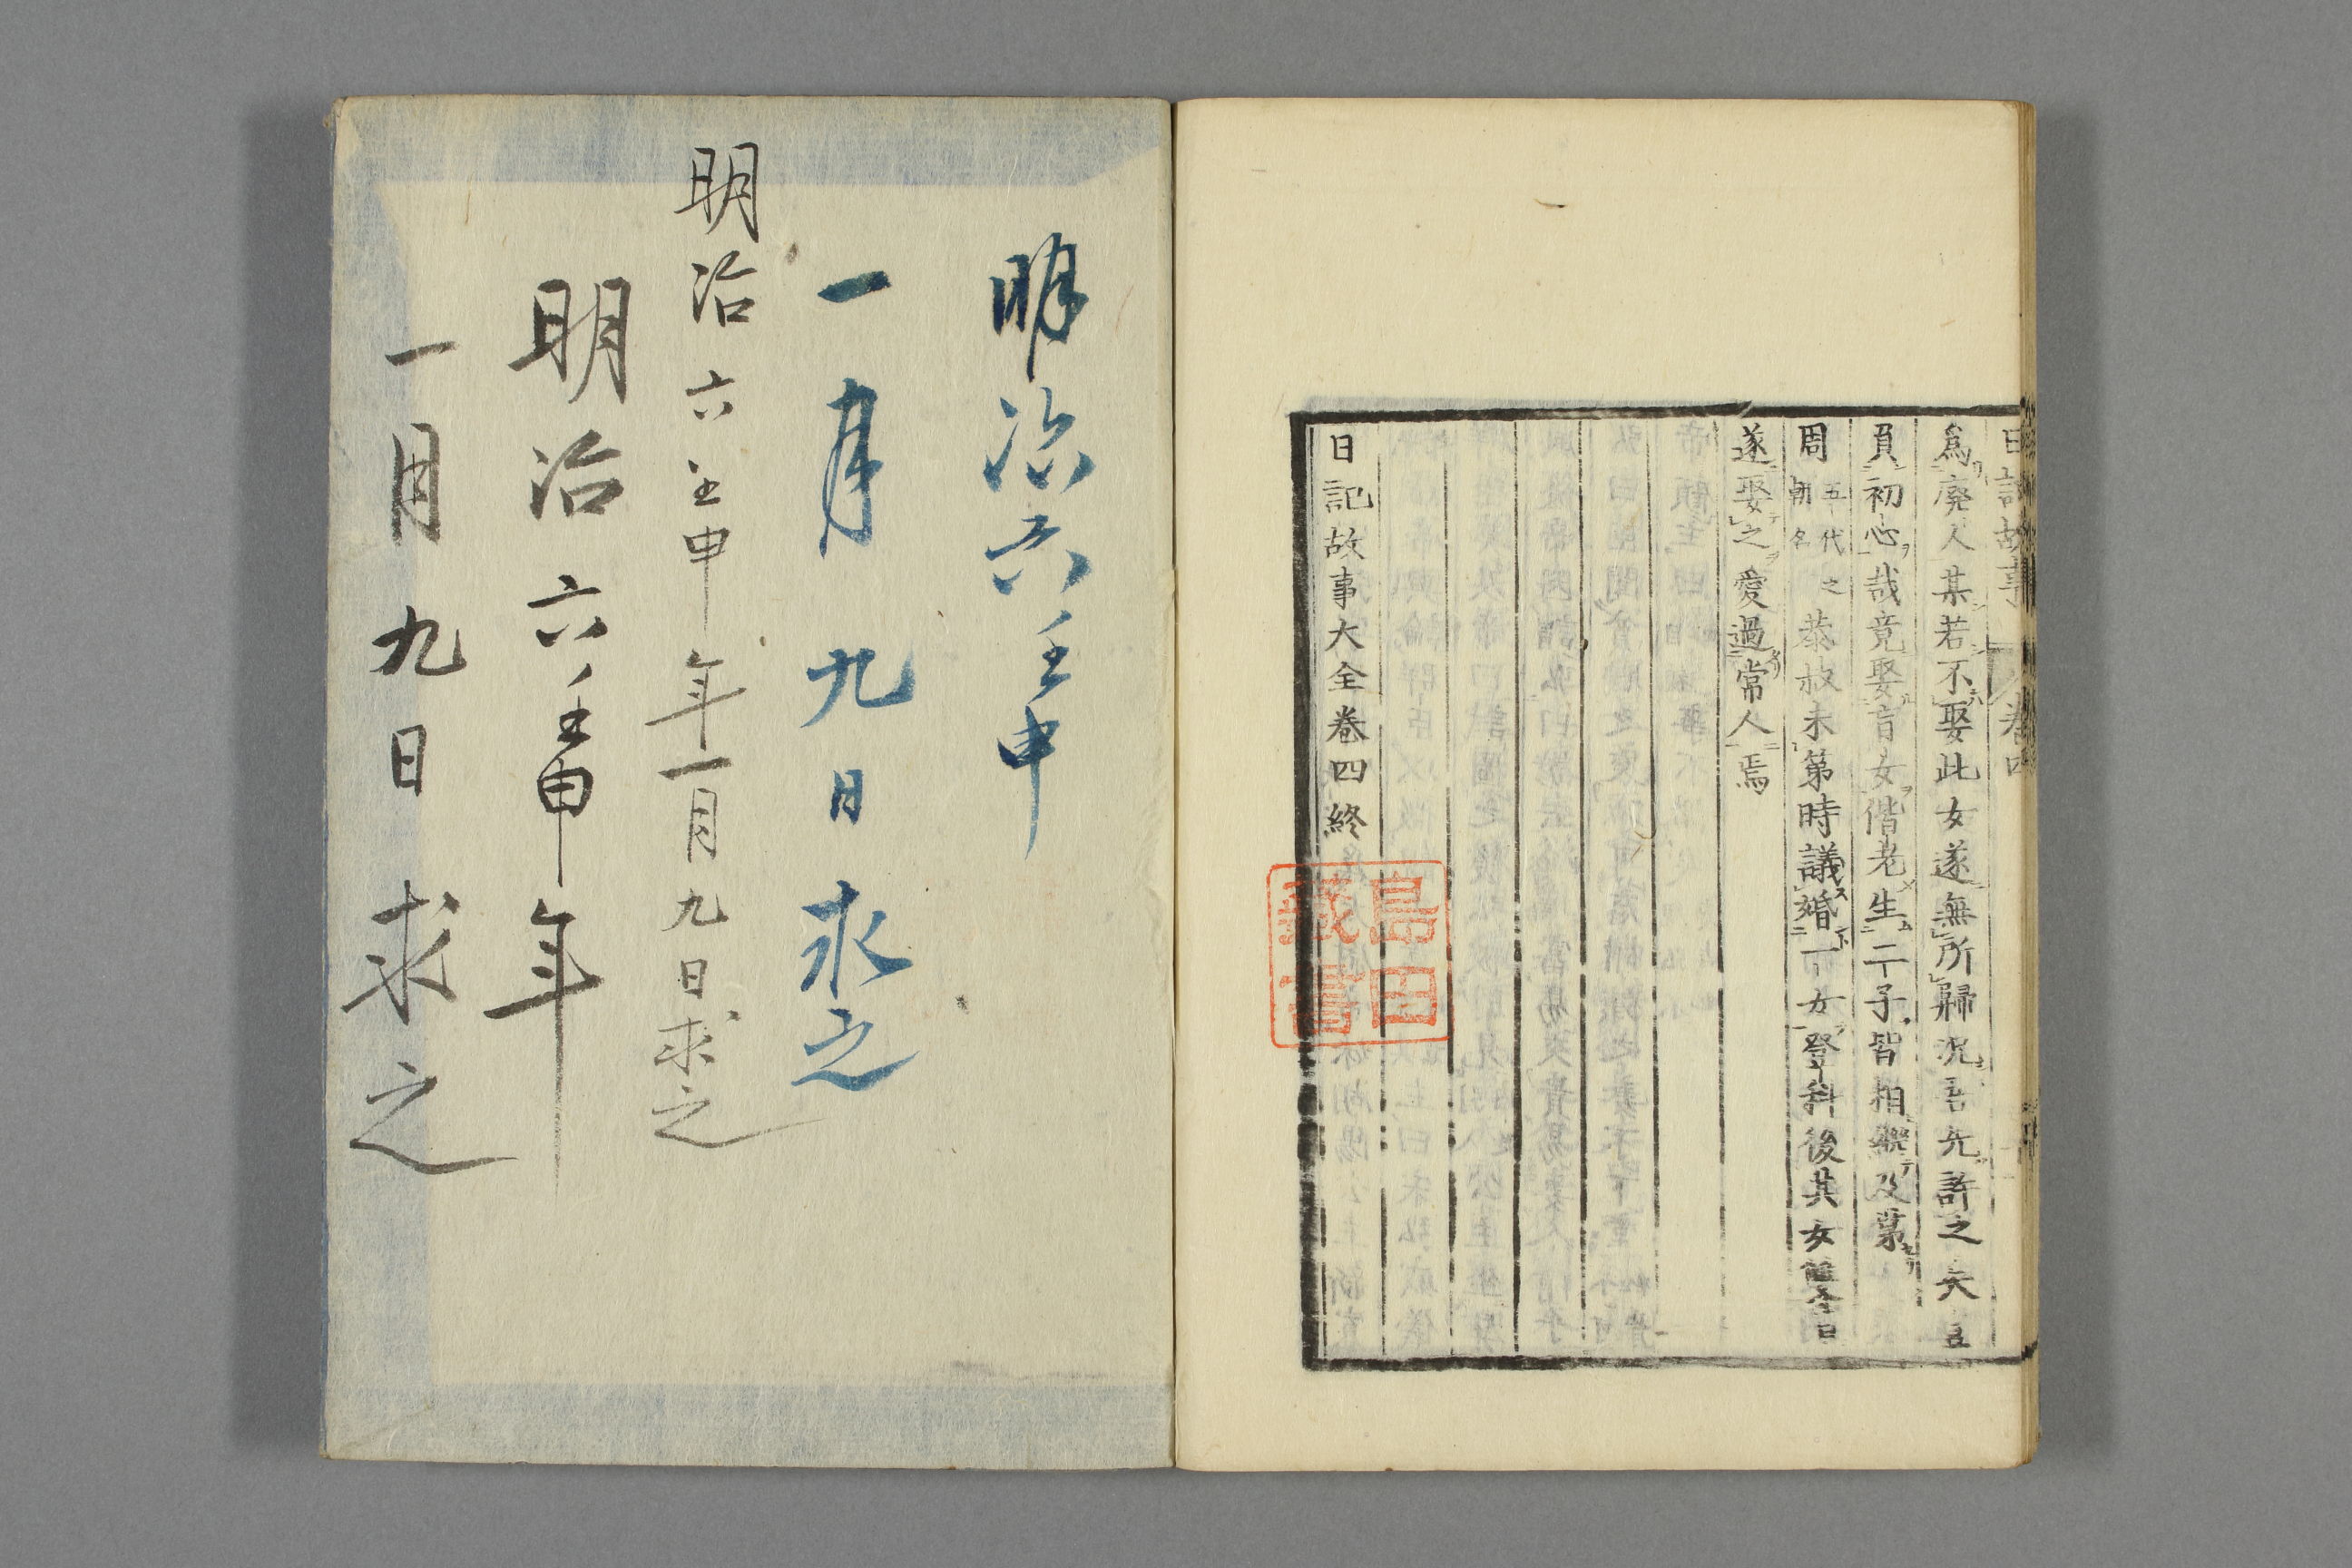 日記故事 卷四
爲廃人某若不娶此女遂無所歸况吾先許之矣豈
負初心哉竟娶盲女偕老生二子皆相繼及第
周五代之朝名恭叔未第時議婚一女登科後其女雙瞽
遂娶之愛過常人焉
日記故事大全卷四終
島田
藏書
明治六壬申
一月九日求之
明治六壬申年一月九日求之
明治六壬申年
一月九日求之